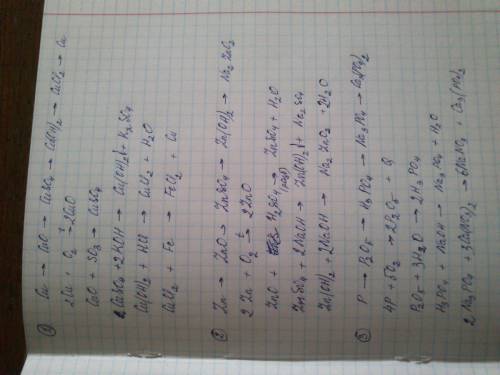 1) Cu → CuO → CuSO4 → Cu(OH)2 → CuCl2 → Cu
2Cu + O2 → 2CuO
CuO + SO3 → CuSO4
CuSO4 + 2KOH → Cu(OH)2↓ + K2SO4
Cu(OH)2 + HCl → CuCl2 + H2O
CuCl2 + Fe → FeCl2 + Cu
2) Zn → ZnO → ZnSO4 → Zn(OH)2 → Na2ZnO2
2Zn + O2 →t 2ZnO
ZnO + H2SO4 → ZnSO4 + H2O
ZnSO4 + 2NaOH → Zn(OH)2↓ + Na2SO4
Zn(OH)2 + 2NaOH → Na2ZnO2 + 2H2O
3) P → P2O5 → H3PO4 → Na3PO4 → Ca3(PO4)2
4P + 5O2 → 2P2O5 + Q
P2O5 + 3H2O → 2H3PO4
H3PO4 + NaOH → Na3PO4 + H2O
2Na3PO4 + 3Ca(NO3)2 → 6NaNO3 + Ca3(PO4)2